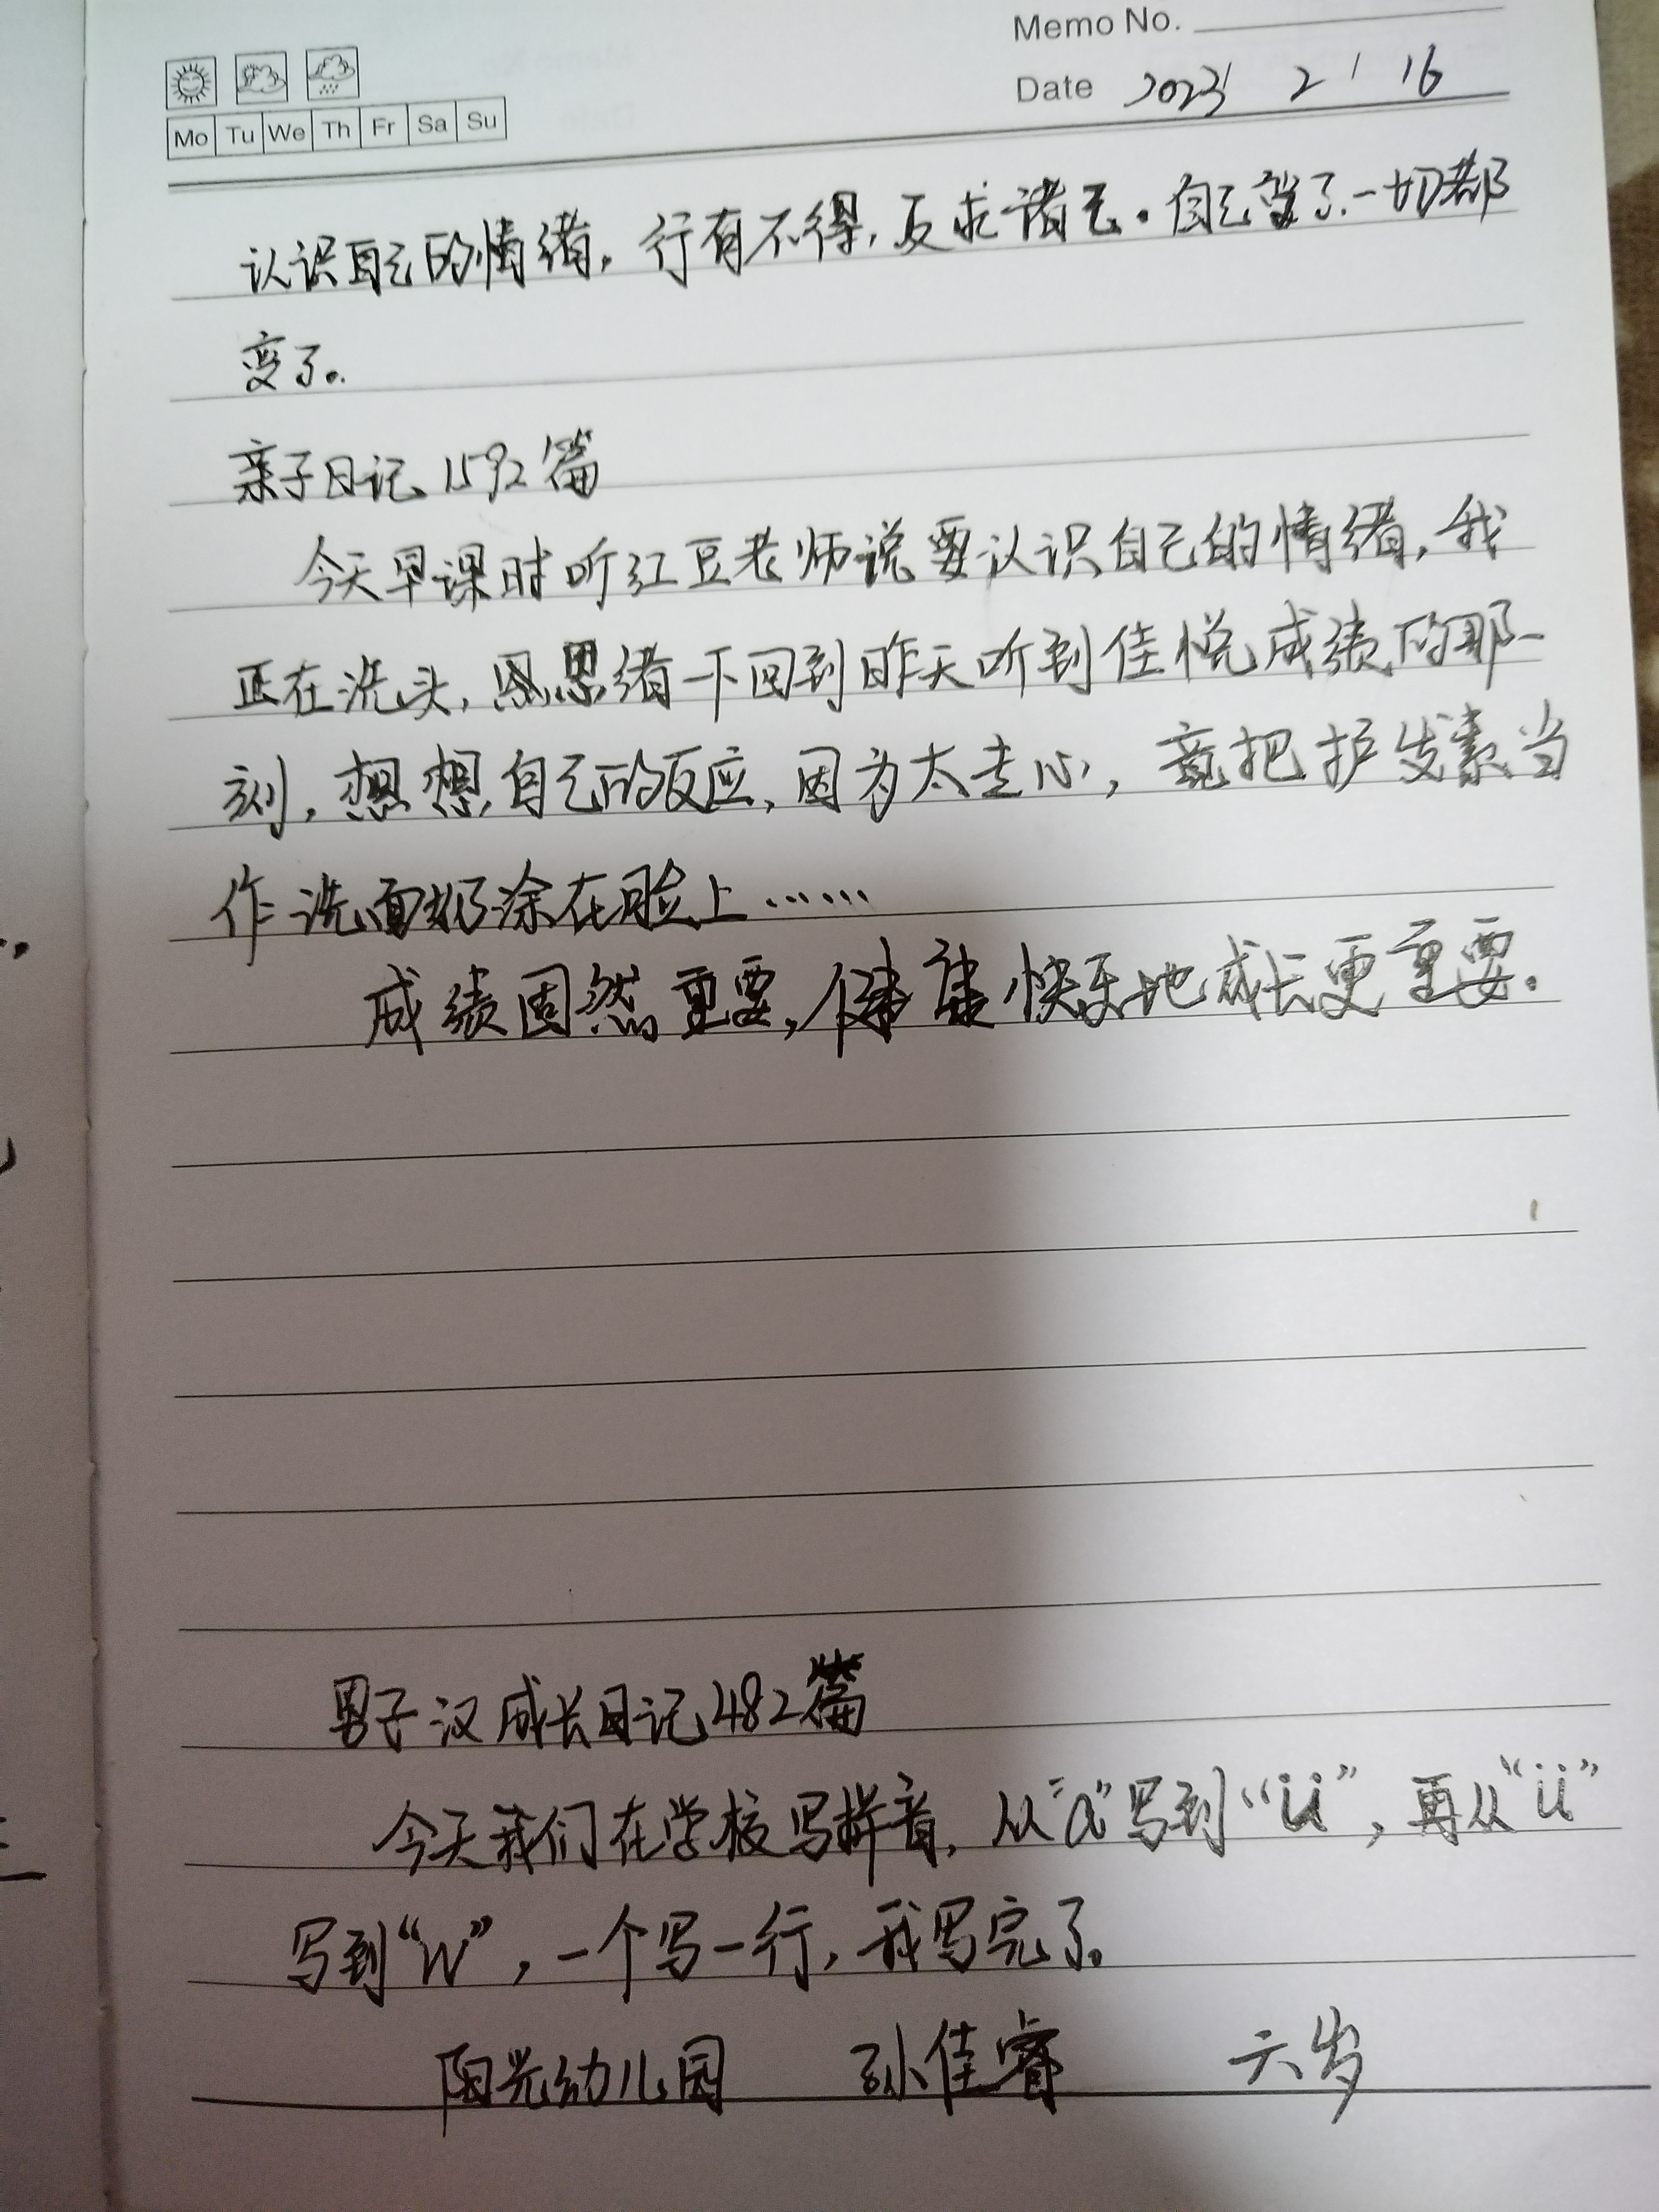 Memo No.
Mo Tu We Th Fr Sa Su
Date 2023 2 16
认识自己的情绪。行有不得,反求诸己。自己变了一切都
变了。
亲子日记1592篇
今天早课时听红豆老师说要认识自己的情绪,我
正在洗头,思绪一下回到昨天听到佳悦成绩的那一
刻,想想自己的反应,因为太走心,竟把护发素当
作洗面奶涂在脸上……
成绩固然重要,健康快乐地成长更重要。
男子汉成长日记482篇
今天我们在学校写拼音,从“a”写到“ü”,再从“ü”
写到“w”,一个写一行,我写完了。
阳光幼儿园 孙佳睿 六岁